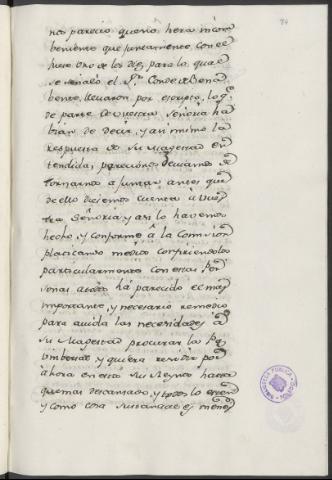 74
nos parecio que no hera incon
beniente que juntamente con el
fuese uno de los diez para lo qual
se señalo el Sr. Conde de Bena
bente, llevaron por escripto, lo qe.
de parte de Vuestra Señoria ha
bian de decir, y asi mismo la
respuesta de su Magestad en
tendida, parecionos deviamos de
tornarnos a juntar antes que
de ello diesemos cuenta à Vues
tra Señoria y asi lo havemos
hecho, y conforme â la Comision
platicando medios confiriendolos
particularmente con estas Per
sonas à todos ha parecido el mas
importante, y necesario remedio
para aiuda las necesidades de
su Magestad procurar la Pa
y quiera residir por
ahora en estos sus Reynos hasta
que mas descansado, y todos lo
y como cosa sustancial el menos
BIBLIOTECA PUBLICA